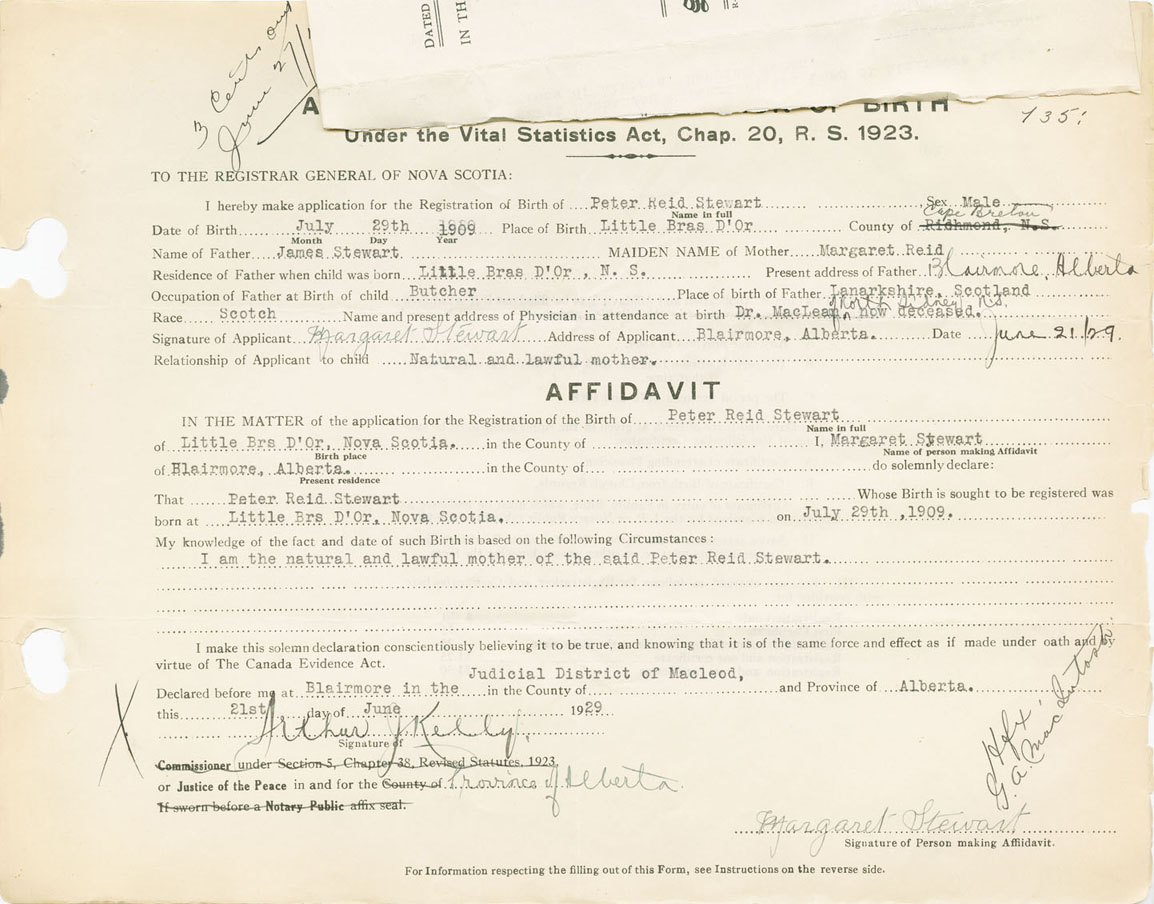 DATED
IN TH
3 Cents
June 27/
OF BIRTH
135
Under the Vital Statistics Act, Chap. 20, R. S. 1923.
TO THE REGISTRAR GENERAL OF NOVA SCOTIA:
I hereby make application for the Registration of Birth of Peter Reid Stewart Sex Male
Name in full
Cape Breton
Date of Birth July 29th 1909 Place of Birth Little Bras D'Or County of Richmond, N.S.
Month Day Year
Name of Father James Stewart MAIDEN NAME of Mother Margaret Reid
Residence of Father when child was born Little Bras D'Or , N. S. Present address of Father Blairmore, Alberta
Occupation of Father at Birth of child Butcher Place of birth of Father Lanarkshire, Scotland
North Sidney, N.S.
Race Scotch Name and present address of Physician in attendance at birth Dr. MacLean, now deceased.
Signature of Applicant Margaret Stewart Address of Applicant Blairmore, Alberta. Date June 21/29.
Relationship of Applicant to child Natural and lawful mother.
AFFIDAVIT
IN THE MATTER of the application for the Registration of the Birth of Peter Reid Stewart
Name in full
of Little Brs D'Or, Nova Scotia. in the County of I, Margaret Stewart
Birth place Name of person making Affidavit
of Blairmore, Alberta. in the County of do solemnly declare:
Present residence
That Peter Reid Stewart Whose Birth is sought to be registered was
born at Little Brs D'Or, Nova Scotia. on July 29th ,1909.
My knowledge of the fact and date of such Birth is based on the following Circumstances :
I am the natural and lawful mother of the said Peter Reid Stewart.
I make this solemn declaration conscientiously believing it to be true, and knowing that it is of the same force and effect as if made under oath and by
virtue of The Canada Evidence Act.
Judicial District of Macleod,
Declared before me at Blairmore in the in the County of and Province of Alberta.
this 21st day of June 1929
Arthur J Kelly.
Signature of
Commissioner under Section 5, Chapter 38, Revised Statutes, 1923,
or Justice of the Peace in and for the County of Province of Alberta.
If sworn before a Notary Public affix seal.
Hfx.
G. A. MacIntosh
Margaret Stewart
Signature of Person making Affidavit.
For Information respecting the filling out of this Form, see Instructions on the reverse side.